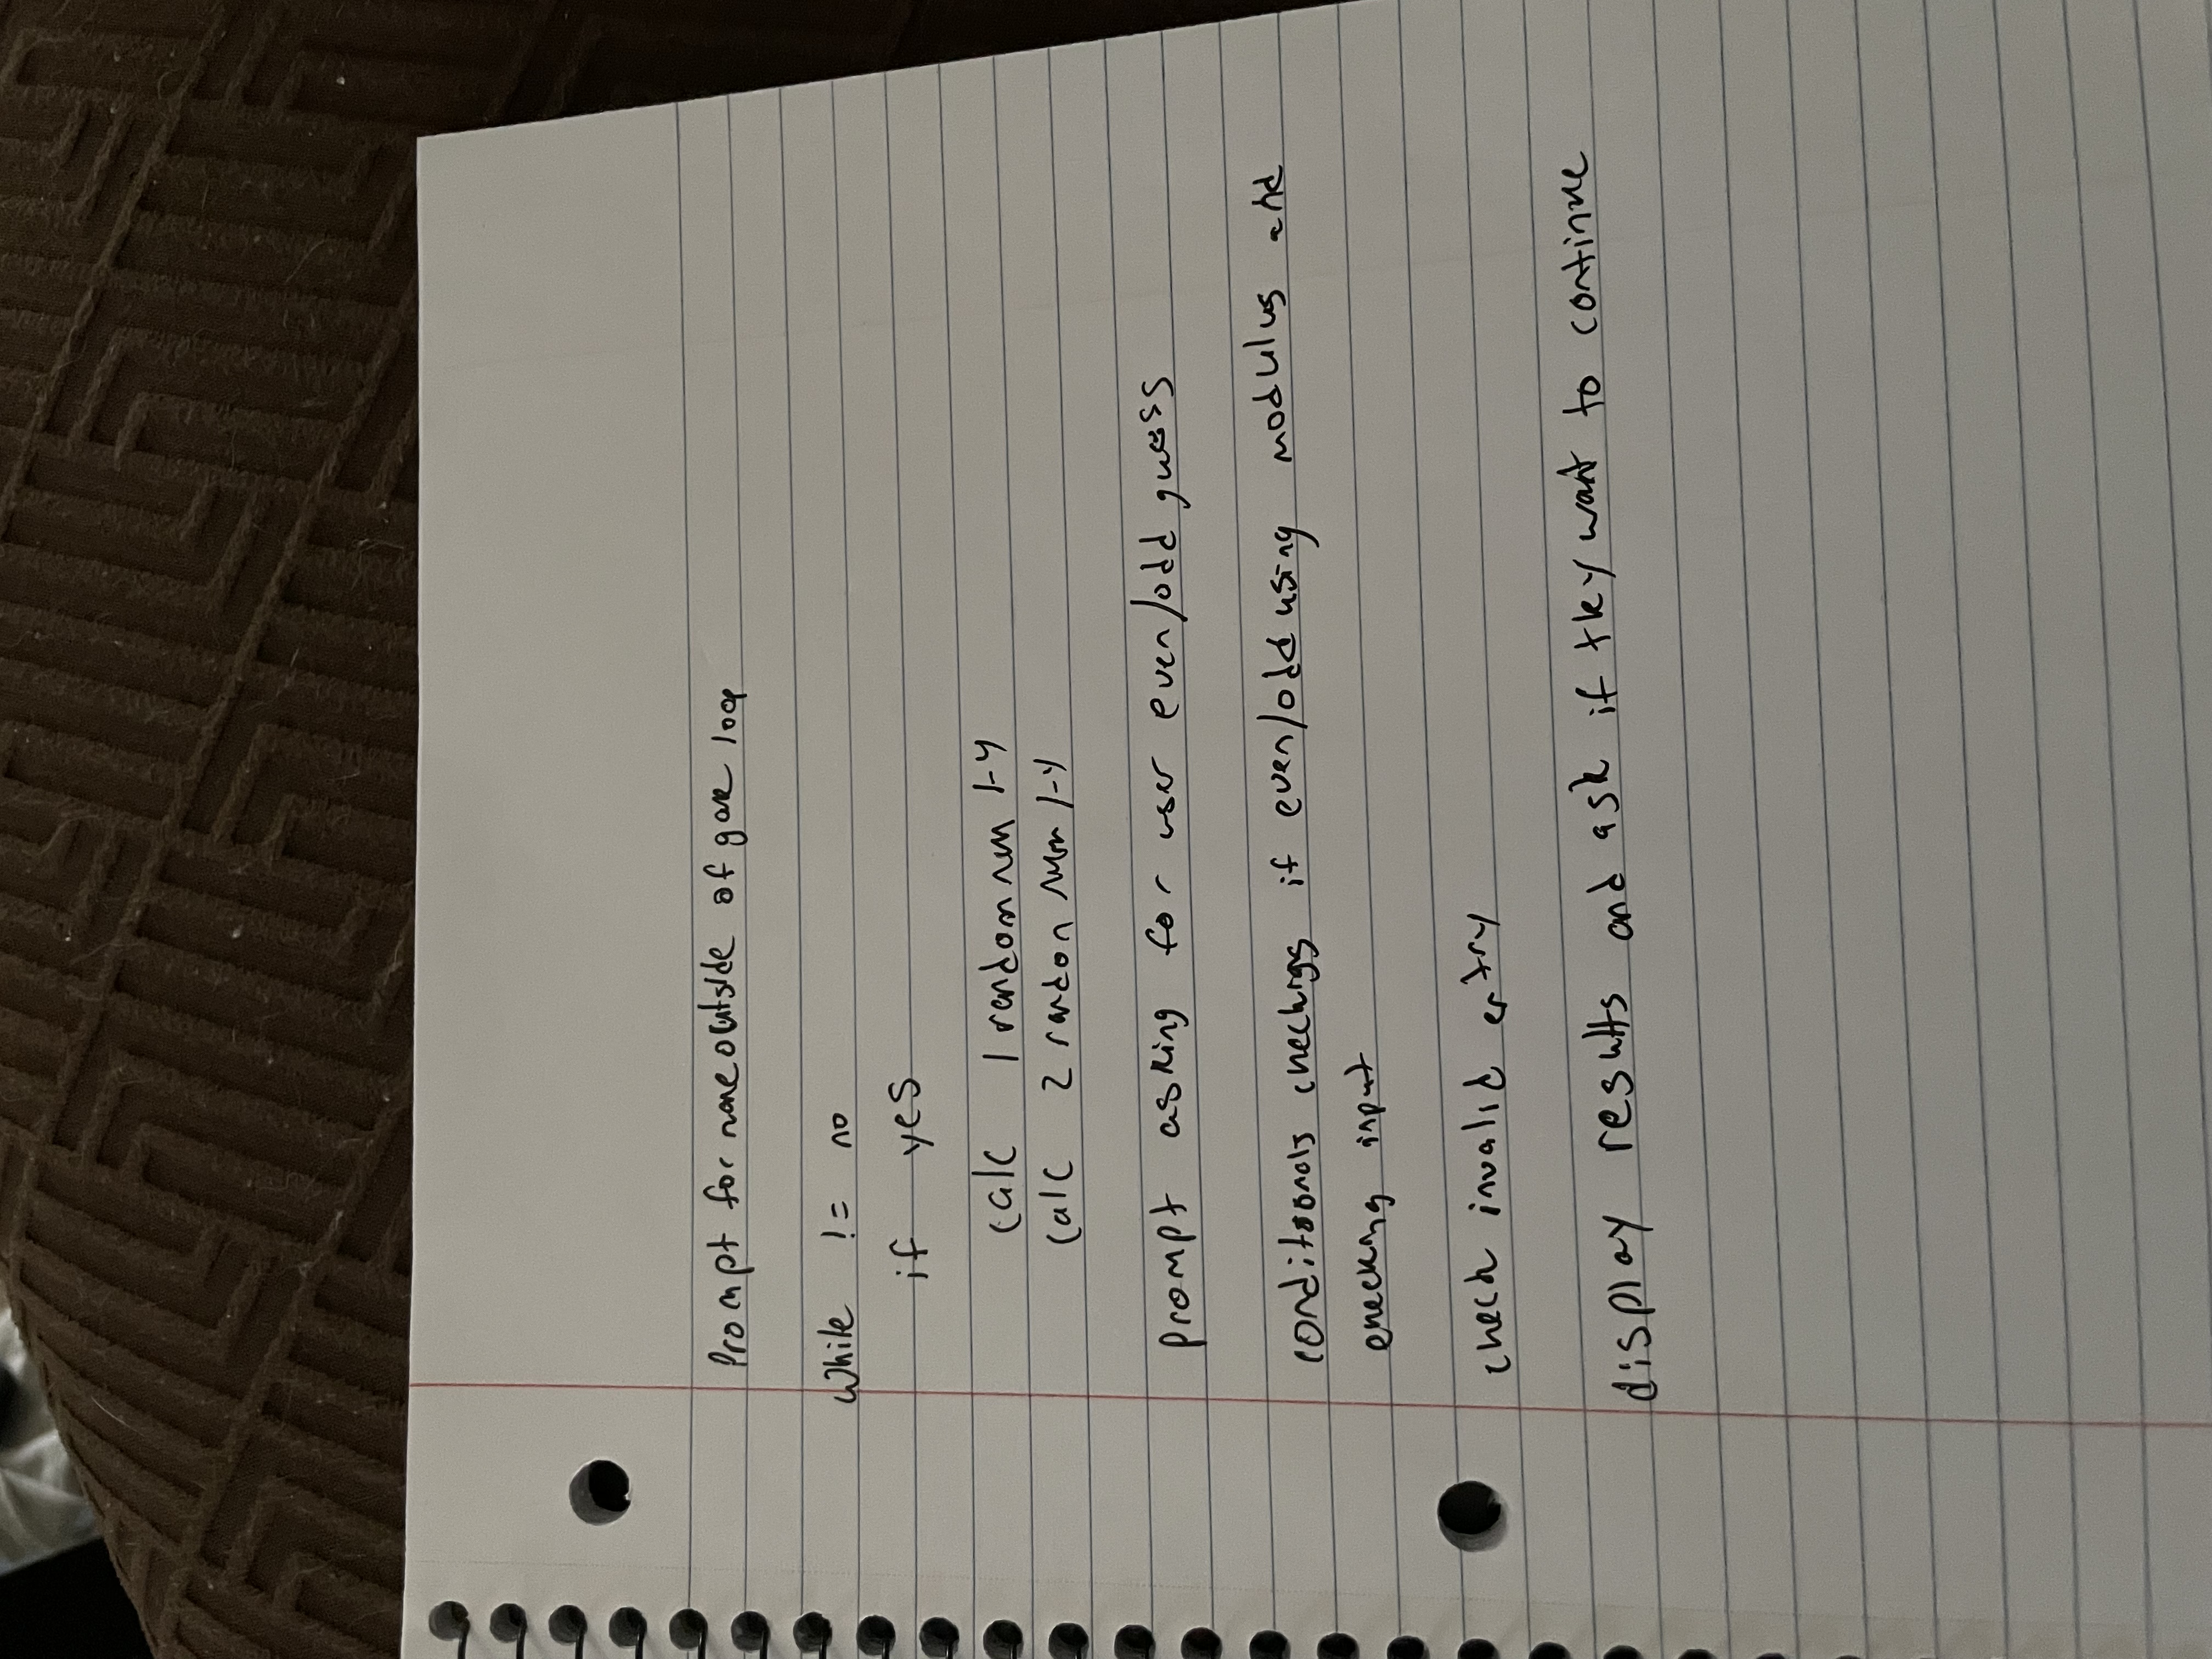 Prompt for name outside of game loop
While != no
if yes
calc 1 random num 1-4
calc 2 random num 1-4
prompt asking for user even/odd guess
conditionals checkings if even/odd using modulus and
checking input
check invalid entry
display results and ask if they want to continue